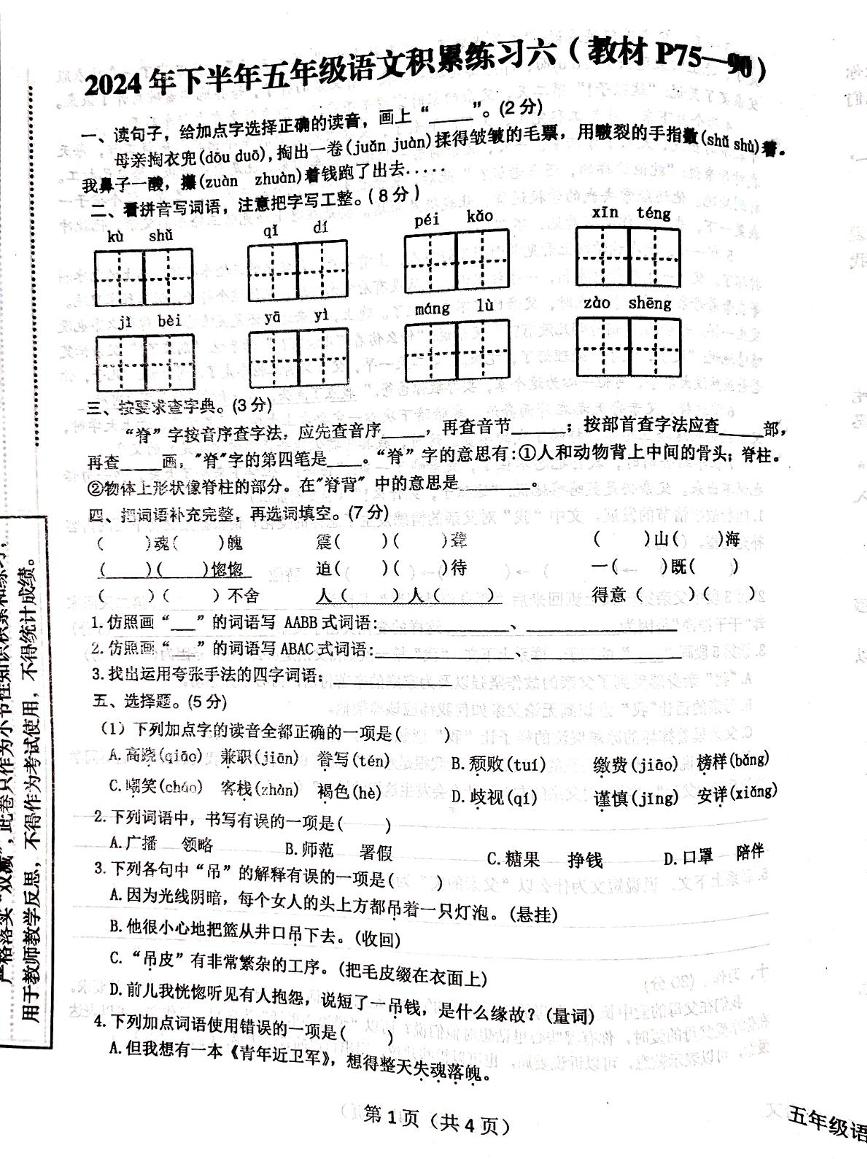 2024年下半年五年级语文积累练习六（教材P75—90）
一、读句子，给加点字选择正确的读音，画上“____”。(2分)
母亲掏衣兜(dōu duō)，掏出一卷(juǎn juàn)揉得皱皱的毛票，用皲裂的手指数(shǔ shù)着。
我鼻子一酸，攥(zuàn zhuàn)着钱跑了出去.....
二、看拼音写词语，注意把字写工整。(8分)
kù shǔ qǐ dí péi kǎo xīn téng
jì bèi yā yì máng lù zào shēng
三、按要求查字典。(3分)
“脊”字按音序查字法，应先查音序____，再查音节____；按部首查字法应查____部，
再查____画，"脊"字的第四笔是____。“脊”字的意思有:①人和动物背上中间的骨头；脊柱。
②物体上形状像脊柱的部分。在"脊背"中的意思是________。
四、把词语补充完整，再选词填空。(7分)
( )魂( )魄 震( )( )聋 ( )山( )海
( )( )惚惚 迫( )( )待 一( )既( )
( )( )不舍 人( )人( ) 得意( )( )
1.仿照画“___”的词语写AABB式词语:____________、____________
2.仿照画“ ”的词语写ABAC式词语:____________、____________
3.找出运用夸张手法的四字词语:____________
五、选择题。(5分)
（1）下列加点字的读音全都正确的一项是( )
A.高跷(qiāo) 兼职(jiān) 誊写(tén) B.颓败(tuí) 缴费(jiāo) 榜样(bǎng)
C.嘲笑(cháo) 客栈(zhàn) 褐色(hè) D.歧视(qí) 谨慎(jǐng) 安详(xiáng)
2.下列词语中，书写有误的一项是( )
A.广播 领略 B.师范 署假 C.糖果 挣钱 D.口罩 陪伴
3.下列各句中“吊”的解释有误的一项是( )
A.因为光线阴暗，每个女人的头上方都吊着一只灯泡。(悬挂)
B.他很小心地把篮从井口吊下去。(收回)
C.“吊皮”有非常繁杂的工序。(把毛皮缀在衣面上)
D.前儿我恍惚听见有人抱怨，说短了一吊钱，是什么缘故？(量词)
4.下列加点词语使用错误的一项是( )
A.但我想有一本《青年近卫军》，想得整天失魂落魄。
第1页（共4页）
五年级语
严格落实“双减”，此卷只作为小节性知识积累和练习，
用于教师教学反思，不得作为考试使用，不得统计成绩。